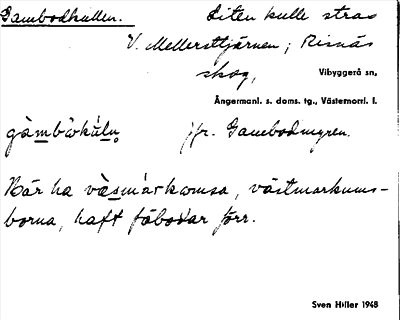 Gambodkullen. Liten kulle strax
V. Mellersttjärnen; Risnäs
skog, Vibyggerå sn,
Ångermanl. s. doms. tg., Västernorrl. l.
jfr. Gambodmyren.
Här ha , västmarkums-
borna, haft fäbodar förr.
Sven Hiller 1948